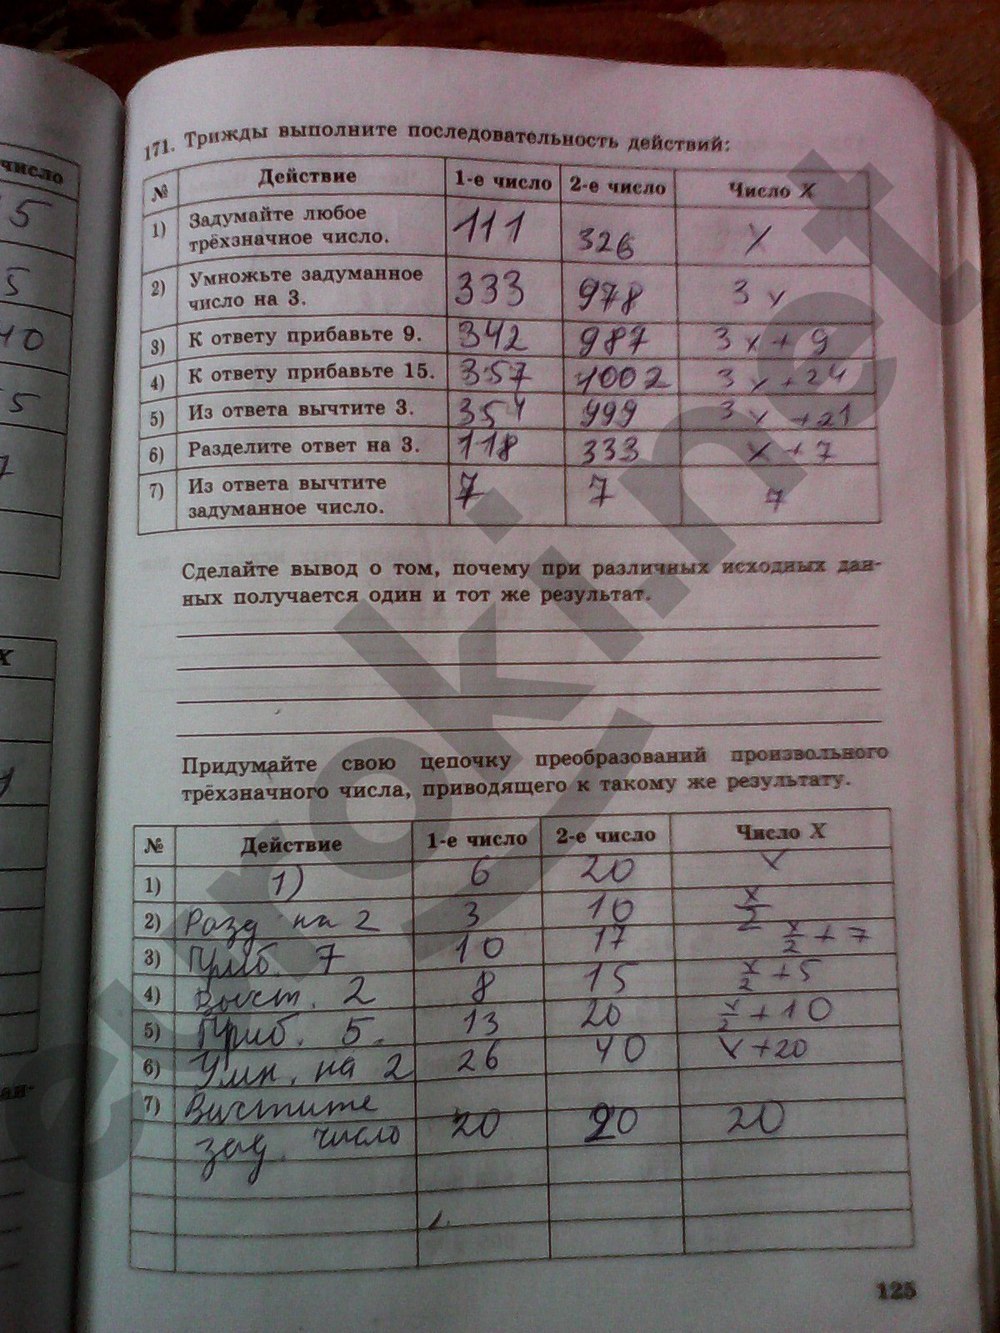 171. Трижды выполните последовательность действий:
№ Действие 1-е число 2-е число Число X
1) Задумайте любое трёхзначное число. 111 326 x
2) Умножьте задуманное число на 3. 333 978 3x
3) К ответу прибавьте 9. 342 987 3x+9
4) К ответу прибавьте 15. 357 1002 3x+24
5) Из ответа вычтите 3. 354 999 3x+21
6) Разделите ответ на 3. 118 333 x+7
7) Из ответа вычтите задуманное число. 7 7 7
Сделайте вывод о том, почему при различных исходных дан-
ных получается один и тот же результат.
Придумайте свою цепочку преобразований произвольного
трёхзначного числа, приводящего к такому же результату.
№ Действие 1-е число 2-е число Число X
1) 1) 6 20 x
2) Разд на 2 3 10 x/2
3) Приб. 7 10 17 x/2+7
4) Выст. 2 8 15 x/2+5
5) Приб. 5. 13 20 x/2+10
6) Умн. на 2 26 40 x+20
7) Вычтите
зад. число 20 20 20
125
число
15
5
40
5
7
X
ан-
cuokinet